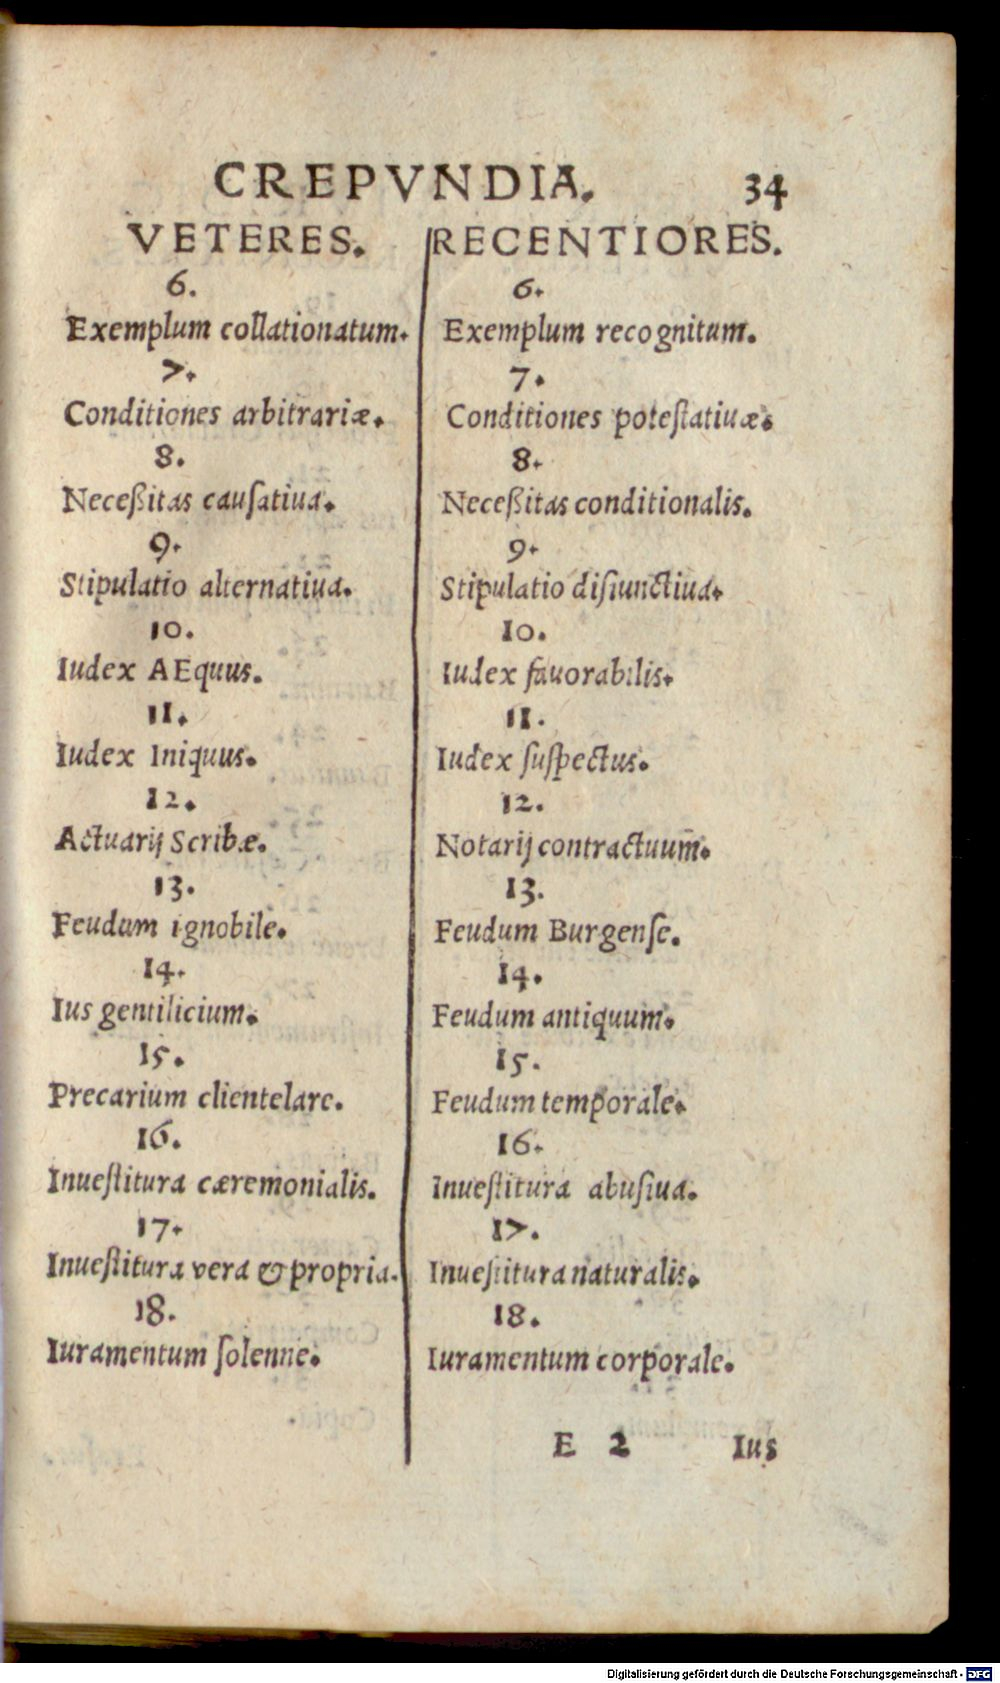 CREPVNDIA. 34
VETERES. RECENTIORES.
6. 6.
Exemplum collationatum. Exemplum recognitum.
7. 7.
Conditiones arbitrariæ. Conditiones poteſtatiuæ.
8. 8.
Neceßitas cauſatiua. Neceßitas conditionalis.
9. 9.
Stipulatio alternatiua. Stipulatio diſiunctiua.
10. 10.
Iudex AEquus. Iudex fauorabilis.
11. 11.
Iudex Iniquus. Iudex ſuſpectus.
12. 12.
Actuarij Scribæ. Notarij contractuum.
13. 13.
Feudum ignobile. Feudum Burgenſe.
14. 14.
Ius gentilicium. Feudum antiquum.
15. 15.
Precarium clientelare. Feudum temporale.
16. 16.
Inueſtitura cæremonialis. Inueſtitura abuſiua.
17. 17.
Inueſtitura vera & propria. Inueſtitura naturalis.
18. 18.
Iuramentum ſolenne. Iuramentum corporale.
E 2 Ius
Digitalisierung gefördert durch die Deutsche Forschungsgemeinschaft - DFG